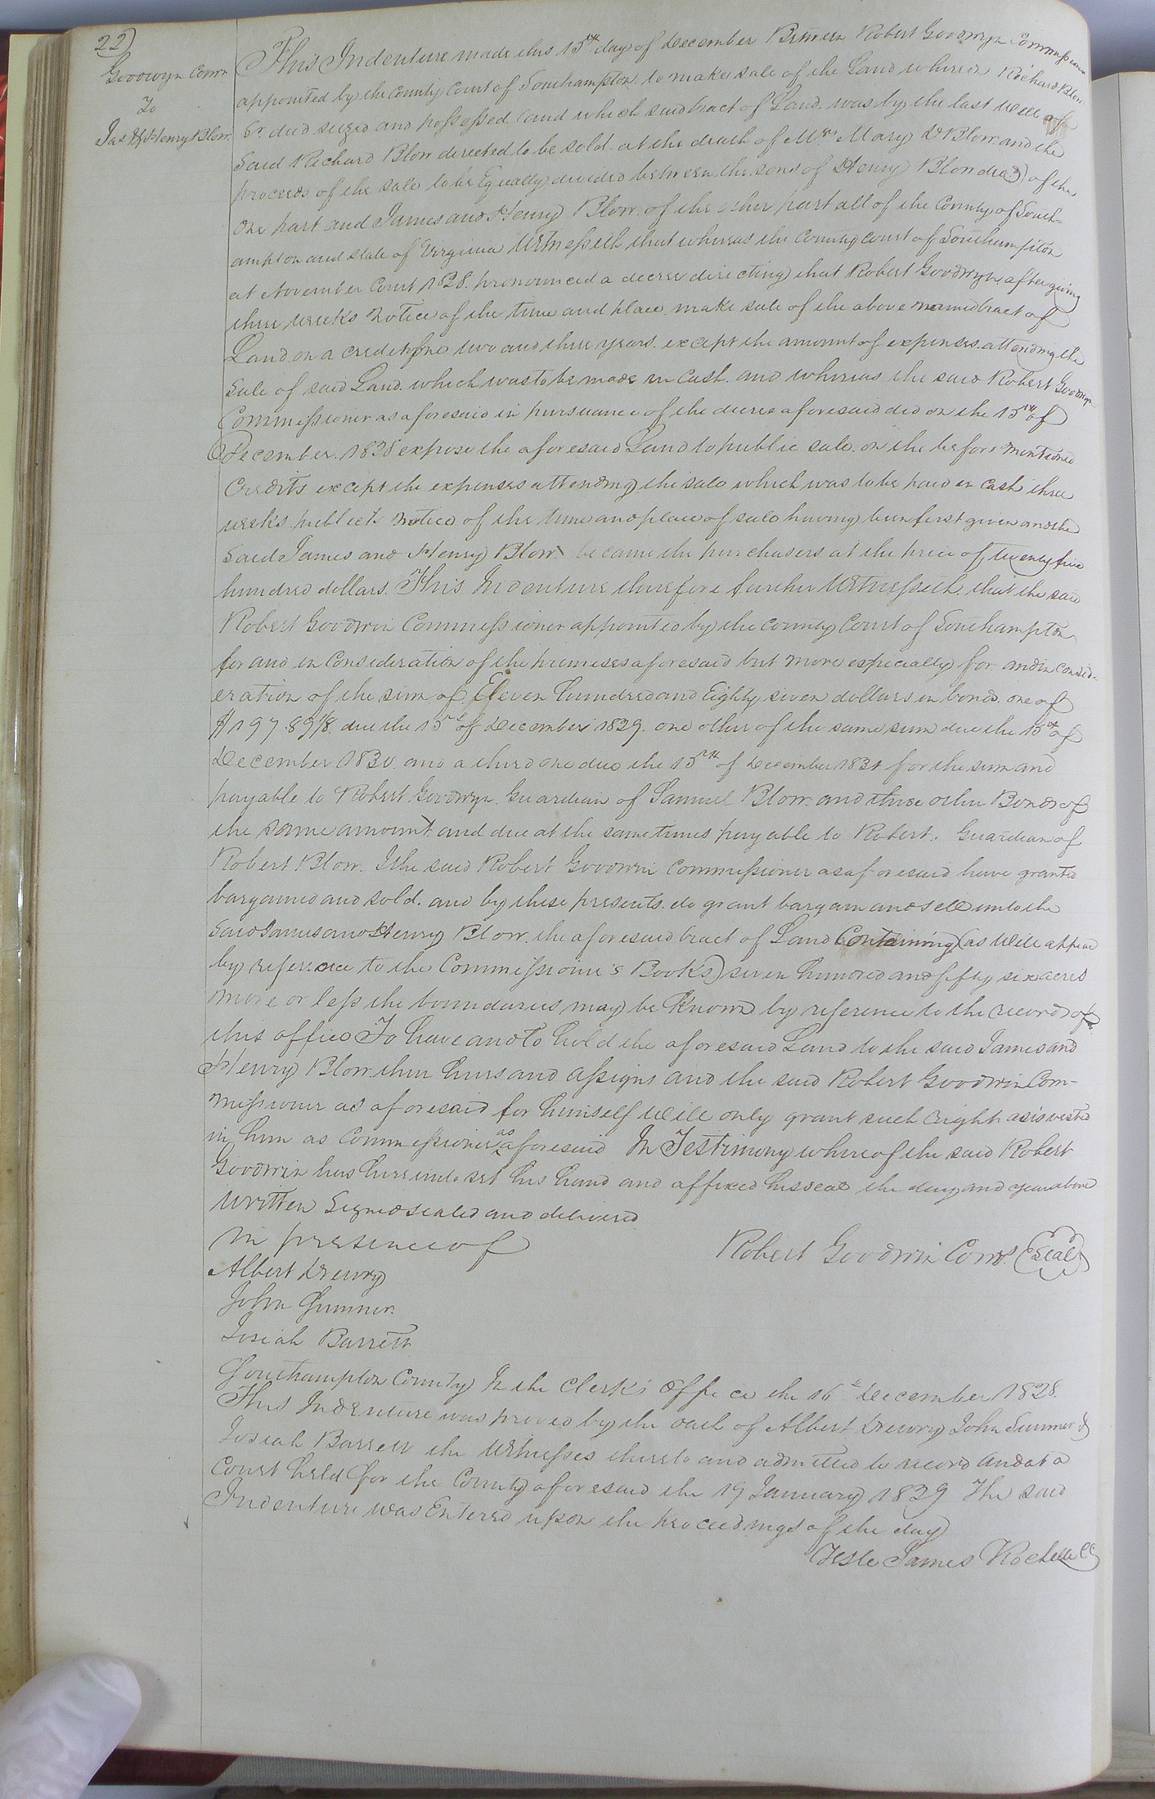 22)
Goodwyn Comr
To
Jas & Henry Blow
This Indenture made this 15th day of December Between Robert Goodwyn Commissioner
appointed by the County Court of Southampton to make sale of the Land whereon Richard Blow
Sr died seized and possessed (and which said tract of Land was by the last Will of
Said Richard Blow directed to be sold at the death of Mrs Mary Blow and the
proceeds of the sale to be Equally divided between the sons of Henry Blow decd) of the
one part and James and Henry Blow of the other part all of the County of South-
ampton and state of Virginia Witnesseth that whereas the County Court of Southampton
at November Court 1828 pronounced a decree directing that Robert Goodwyn after giving
three weeks Notice of the time and place make sale of the above named tract of
Land on a credit of one two and three years except the amount of expenses attending the
Sale of said Land which was to be made in Cash and whereas the said Robert Goodwyn
Commissioner as aforesaid in pursuance of the decree aforesaid did on the 15th of
December 1828 expose the aforesaid Land to public sale on the before mentioned
Credits except the expenses attending the sale which was to be paid in Cash three
weeks public notice of the time and place of sale having been first given and the
Said James and Henry Blow became the purchasers at the price of twenty five
hundred dollars. This Indenture therefore further Witnesseth that the said
Robert Goodwin Commissioner appointed by the County Court of Southampton
for and in Consideration of the premises aforesaid but more especially for and in consid-
eration of the sum of Eleven hundred and Eighty seven dollars in bonds one of
$197.89 1/8 due the 15th of December 1829 one other of the same sum due the 15th of
December 1830 and a third one due the 15th of December 1831 for the sum and
payable to Robert Goodwyn Guardian of Samuel Blow and three other Bonds of
the same amount and due at the same times payable to Robert. Guardian of
Robert Blow. I the said Robert Goodwin Commissioner as aforesaid have granted
bargained and sold. and by these presents do grant bargain and sell unto the
Said James and Henry Blow the aforesaid tract of Land Containing (as will appear
by reference to the Commissioner's Books) seven hundred and fifty six acres
more or less the boundaries may be Known by reference to the records of
this office To have and to hold the aforesaid Land to the said James and
Henry Blow their heirs and assigns and the said Robert Goodwin Com-
missioner as aforesaid for himself will only grant such right as is vested
in him as Commissioner as aforesaid In Testimony whereof the said Robert
Goodwin has hereunto set his hand and affixed his seal the day and year above
written Signed sealed and delivered
in presence of
Robert Goodwin Comr (Seal)
Albert Drewry
John Sumner
Josiah Barrett
Southampton County In the Clerk's Office the 16th December 1828
This Indenture was proved by the oath of Albert Drewry John Sumner &
Josiah Barrett the Witnesses thereto and admitted to record And at a
Court held for the County aforesaid the 19 January 1829 The said
Indenture was Entered upon the proceedings of the day
Teste James Rochelle CC